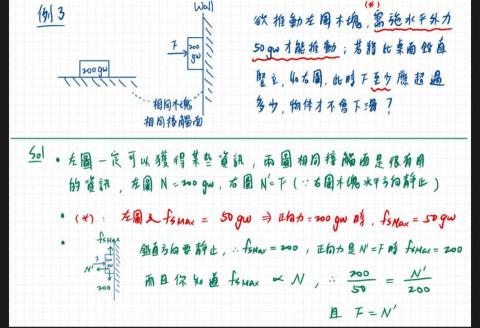 例3
Wall
F
200 gw
200 gw
相同木塊
相同接觸面
欲推動左圖木塊,(*)需施水平外力
50 gw 才能推動;若將此桌面鉛直
豎立,如右圖,此時 F 至少應超過
多少,物体才不會下滑?
Sol
• 左圖一定可以獲得某些資訊,兩圖相同接觸面是很有用
的資訊,左圖 N=200 gw,右圖 N'=F (∵右圖木塊水平方向靜止)
• (*): 左圖之 fsMax = 50 gw ⇒ 正向力=200 gw 時, fsMax = 50 gw
• fsMax
F
N'
200
鉛直方向要靜止, ∴ fsMax = 200 , 正向力是 N'=F 時 fsMax = 200
而且你知道 fsMax ∝ N , ∴ 200/50 = N'/200
且 F = N'